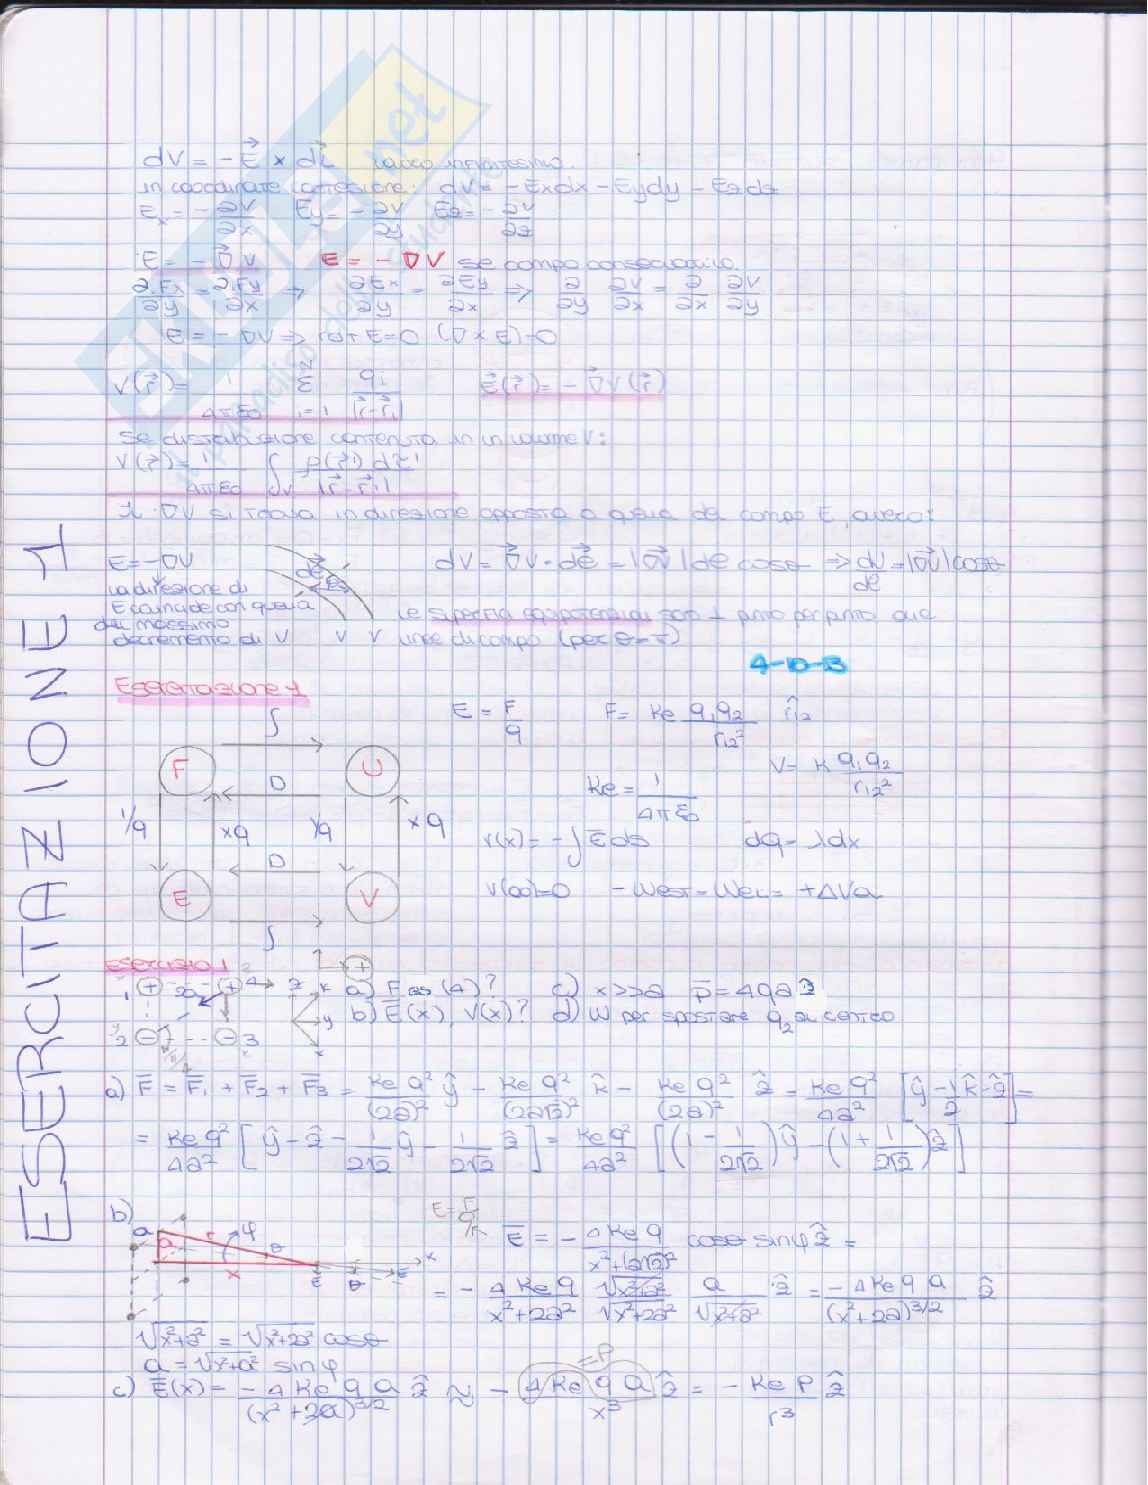 dV = - E⃗ × dl⃗ lavoro infinitesimo.
in coordinate cartesiane: dV = -Exdx - Eydy - Ezdz
Ex = - ∂V/∂x Ey = - ∂V/∂y Ez = - ∂V/∂z
E = - ∇⃗ V E = - ∇V se campo conservativo.
∂Fx/∂y = ∂Fy/∂x → ∂Ex/∂y = ∂Ey/∂x ⇒ ∂/∂y ∂V/∂x = ∂/∂x ∂V/∂y
E = - ∇V ⇒ rot E = 0 (∇ × E) = 0
V(r⃗) = 1/4πε0 Σ i=1 qi/|r⃗-r⃗i| E⃗(r⃗) = - ∇⃗V(r⃗)
Se distribuzione contenuta in un volume V:
V(r⃗) = 1/4πε0 ∫V ρ(r⃗') dτ'/|r⃗-r⃗'|
Il ∇V si trova in direzione opposta a quella del campo E, ovvero:
E = -∇V
la direzione di
E coincide con quella
del massimo
decremento di V
V V
dV = ∇⃗V · dl⃗ = |∇⃗V| dl cosθ ⇒ dV/dl = |∇⃗V| cosθ
le superfici equipotenziali sono ⊥ punto per punto alle
linee di campo (per θ=π)
4-10-13
ESERCITAZIONE 1
Esercitazione 1
E = F/q F = Ke q1q2/r12² r̂12
V = K q1q2/r12²
Ke = 1/4πε0
∫
F U
D
1/q ×q 1/q ×q
D
E V
∫
V(x) = -∫ E̅ ds dq = λdx
V(∞)=0 -West = Wel = +ΔVq
Esercizio 1
1 + 2a + 4 z
2 - - 3
x y
a) F su (4)? c) x>>a p̅ = 4qa ẑ
b) E̅(x), V(x)? d) W per spostare q2 al centro
a) F̅ = F̅1 + F̅2 + F̅3 = Ke q²/(2a)² ŷ - Ke q²/(2a√2)² k̂ - Ke q²/(2a)² ẑ = Ke q²/4a² [ŷ - 1/2 k̂ - ẑ] =
= Ke q²/4a² [ŷ - ẑ - 1/2√2 ŷ - 1/2√2 ẑ] = Ke q²/4a² [(1 - 1/2√2)ŷ - (1 + 1/2√2)ẑ]
b)
a a r φ θ x E x
E = F/q
E̅ = - 4 Ke q/x²+(a√2)² cosθ sinφ ẑ =
= - 4 Ke q/x²+2a² √x²+a²/√x²+2a² a/√x²+a² ẑ = - 4 Ke q a/(x²+2a)^3/2 ẑ
√x²+a² = √x²+2a² cosθ
a = √x²+a² sinφ
c) E̅(x) = - 4 Ke q a ẑ/(x²+2a)^3/2 ≈ - 4 Ke q a/x³ ẑ = - Ke p/r³ ẑ
= P